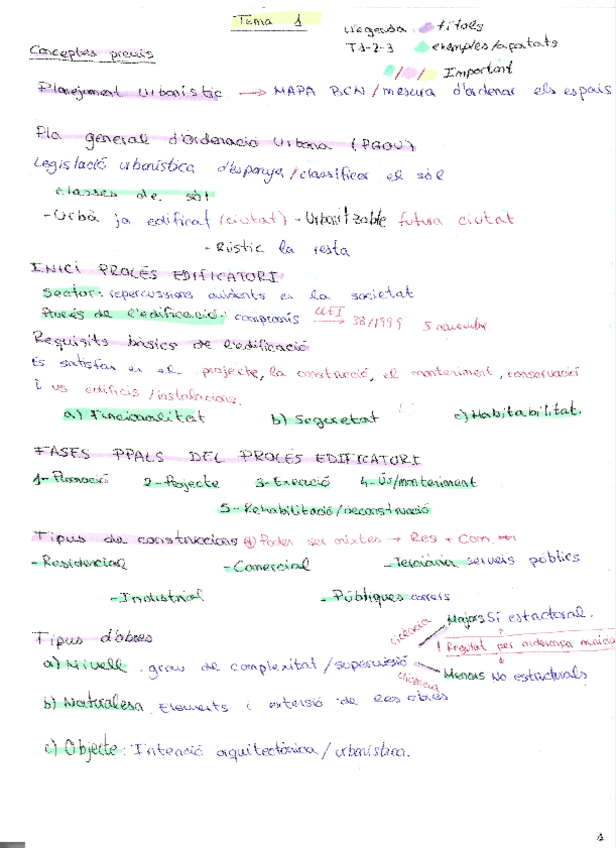 Tema 1
Llegenda: títols
T1-2-3 exemples/apartats
/ / Important
Conceptes previs
Planejament urbanístic → MAPA BCN / mesura d'ordenar els espais
Pla general d'Ordenació Urbana (PGOU)
Legislació urbanística d'Espanya / classificar el sòl
Classes de sòl
- Urbà ja edificat (ciutat) - Urbanitzable futura ciutat
- Rústic la resta
INICI PROCÉS EDIFICATORI
Sector: repercussions evidents en la societat
Procés de l'edificació: compromís LLEI → 38/1999 5 novembre
Requisits bàsics de l'edificació
Es satisfan en el projecte, la construcció, el manteniment, conservació
i ús edificis / instal·lacions.
a) Funcionalitat b) Seguretat c) Habitabilitat.
FASES PPALS DEL PROCÉS EDIFICATORI
1- Promoció 2- Projecte 3- Execució 4- Ús/manteniment
5- Rehabilitació / deconstrucció
Tipus de construccions Poden ser mixtes → Res + Com.
- Residencial - Comercial - Terciària serveis públics
- Industrial - Públiques correis
Tipus d'obres
Llicència Majors Sí estructural.
! Regulat per ordenança
a) Nivell grau de complexitat / supervisió
Llicència Menors No estructurals
b) Naturalesa Elements i extensió de les obres
c) Objecte: Intenció arquitectònica / urbanística.
1